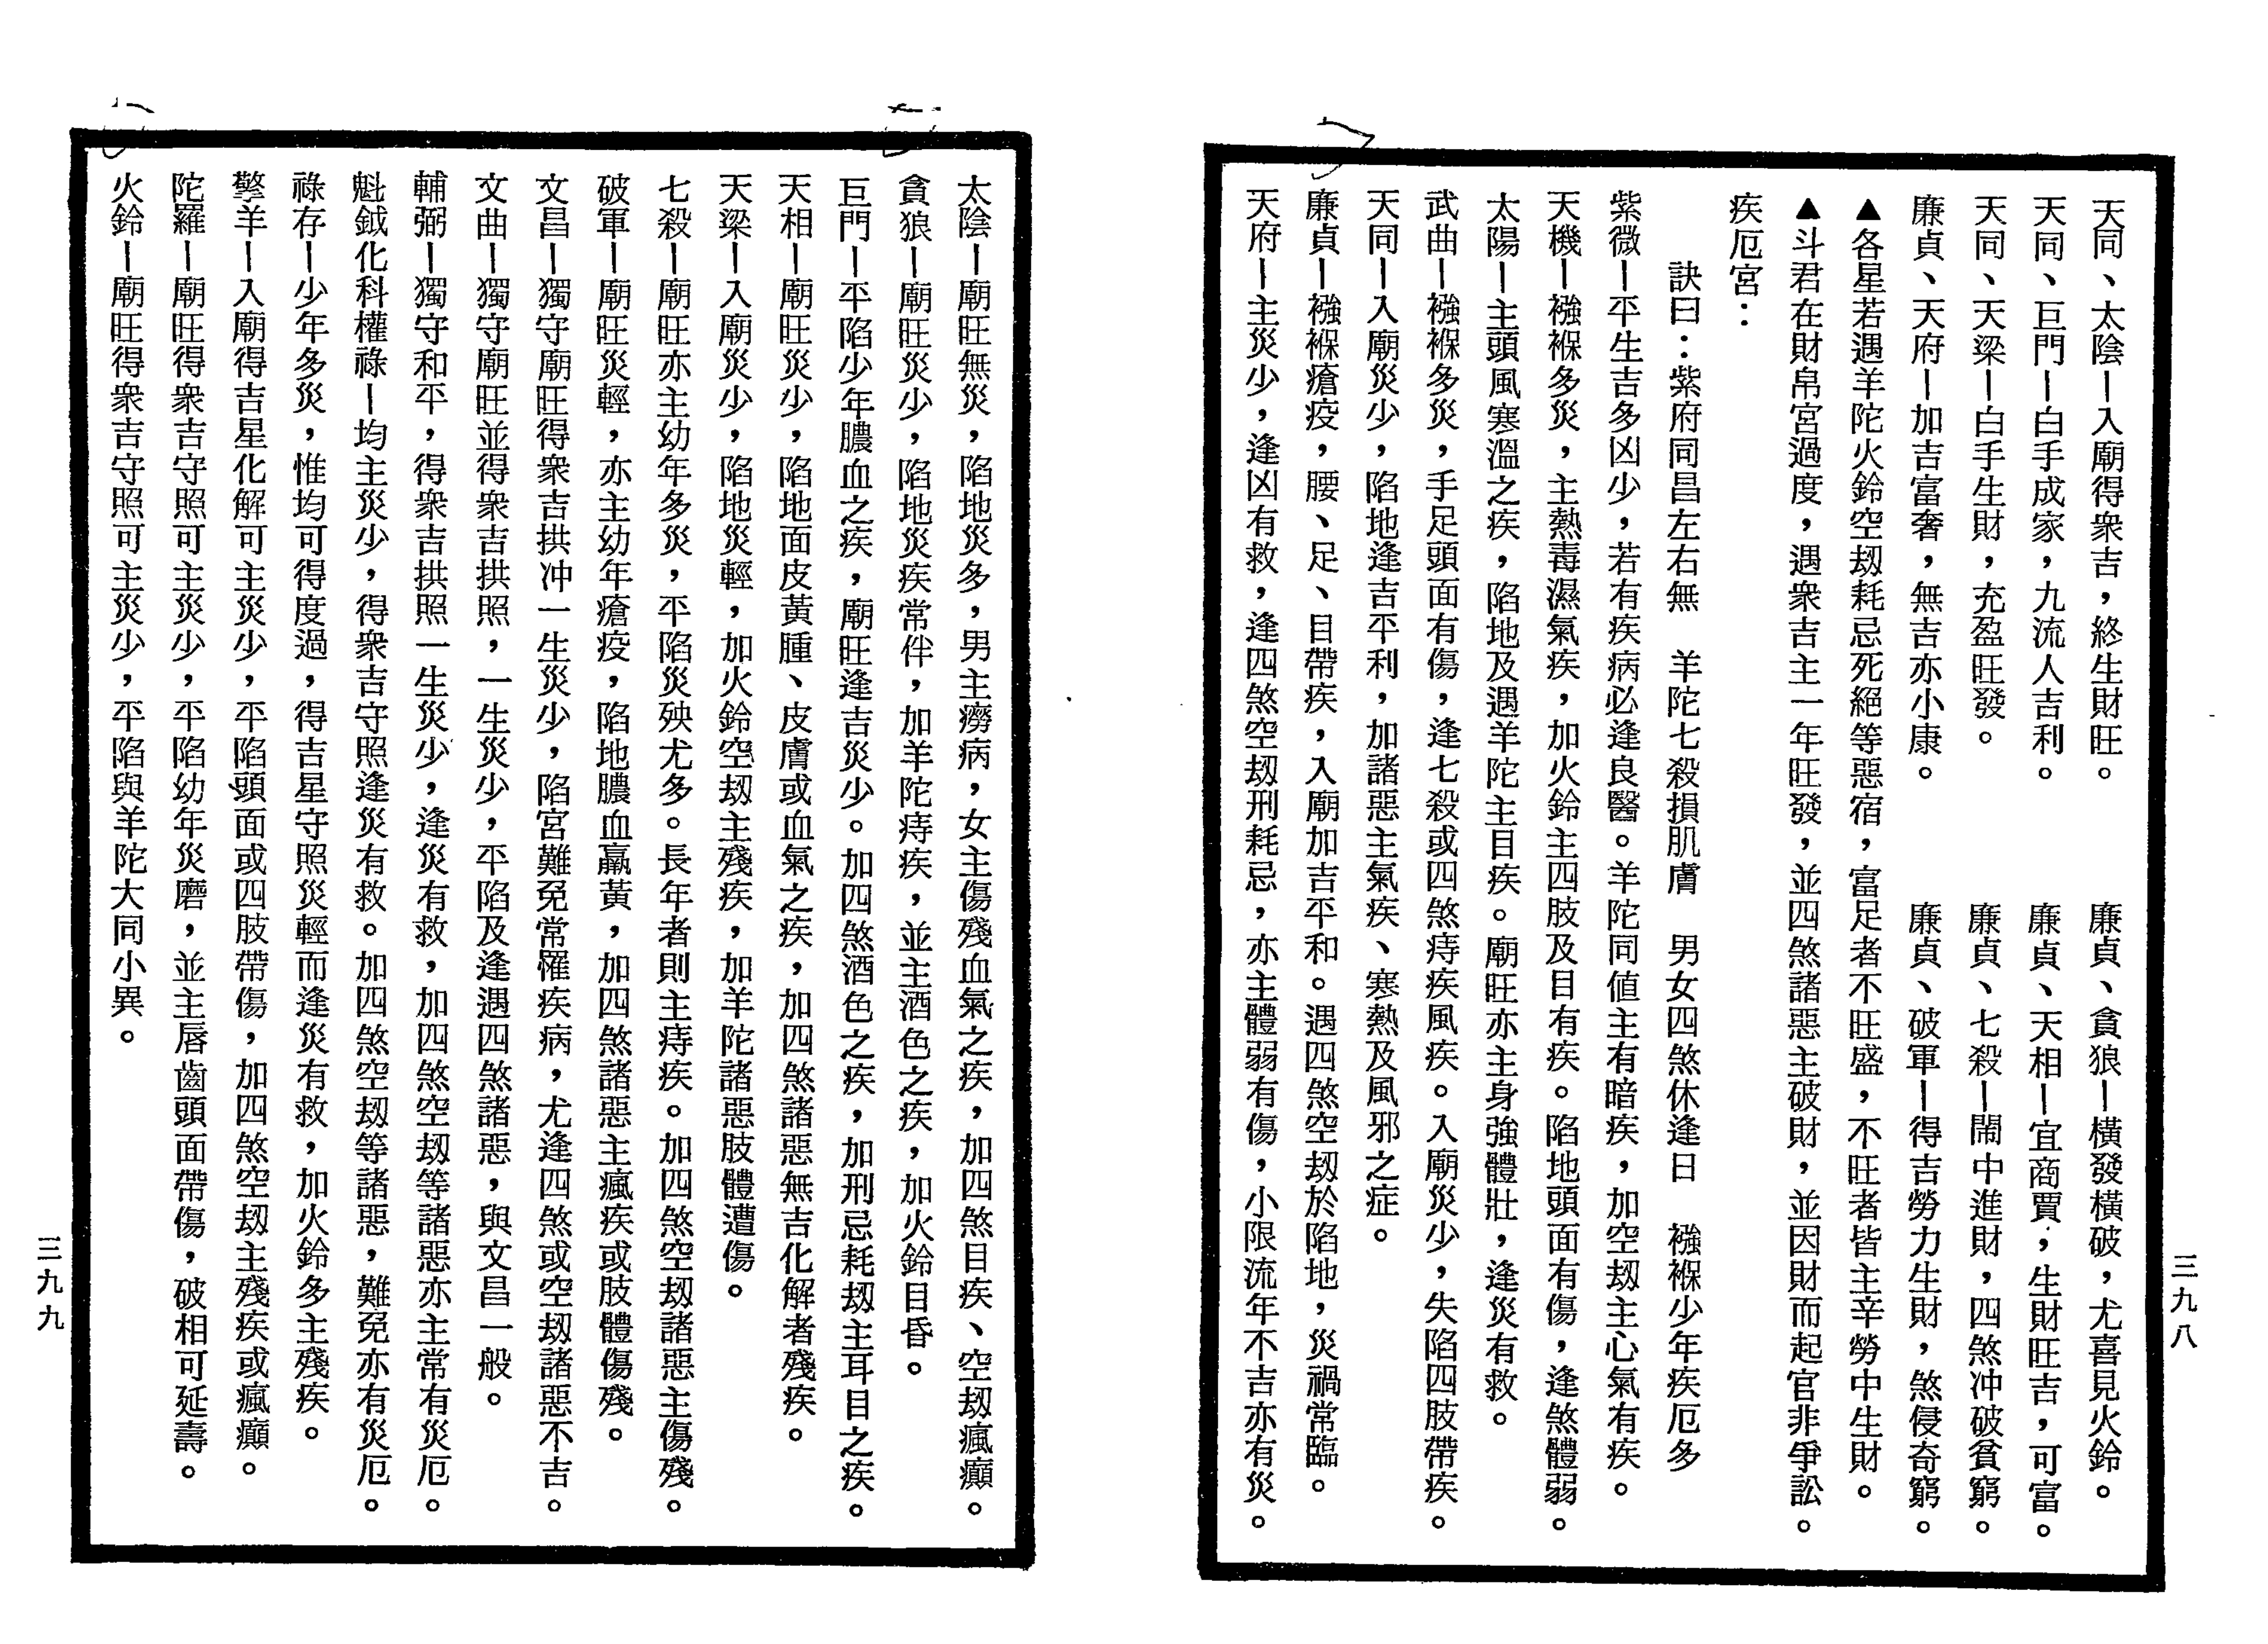 天同、太陰—入廟得衆吉,終生財旺。　廉貞、貪狼—橫發橫破,尤喜見火鈴。
天同、巨門—白手成家,九流人吉利。　廉貞、天相—宜商賈,生財旺吉,可富。
天同、天梁—白手生財,充盈旺發。　廉貞、七殺—鬧中進財,四煞冲破貧窮。
廉貞、天府—加吉富奢,無吉亦小康。　廉貞、破軍—得吉勞力生財,煞侵奇窮。
▲各星若遇羊陀火鈴空刼耗忌死絕等惡宿,富足者不旺盛,不旺者皆主辛勞中生財。
▲斗君在財帛宮過度,遇衆吉主一年旺發,並四煞諸惡主破財,並因財而起官非爭訟。
疾厄宮:
訣曰:紫府同昌左右無　羊陀七殺損肌膚　男女四煞休逢日　襁褓少年疾厄多
紫微—平生吉多凶少,若有疾病必逢良醫。羊陀同値主有暗疾,加空刼主心氣有疾。
天機—襁褓多災,主熱毒濕氣疾,加火鈴主四肢及目有疾。陷地頭面有傷,逢煞體弱。
太陽—主頭風寒溫之疾,陷地及遇羊陀主目疾。廟旺亦主身強體壯,逢災有救。
武曲—襁褓多災,手足頭面有傷,逢七殺或四煞痔疾風疾。入廟災少,失陷四肢帶疾。
天同—入廟災少,陷地逢吉平利,加諸惡主氣疾、寒熱及風邪之症。
廉貞—襁褓瘡疫,腰、足、目帶疾,入廟加吉平和。遇四煞空刼於陷地,災禍常臨。
天府—主災少,逢凶有救,逢四煞空刼刑耗忌,亦主體弱有傷,小限流年不吉亦有災。
三九八
太陰—廟旺無災,陷地災多,男主癆病,女主傷殘血氣之疾,加四煞目疾、空刼瘋癲。
貪狼—廟旺災少,陷地災疾常伴,加羊陀痔疾,並主酒色之疾,加火鈴目昏。
巨門—平陷少年膿血之疾,廟旺逢吉災少。加四煞酒色之疾,加刑忌耗刼主耳目之疾。
天相—廟旺災少,陷地面皮黃腫、皮膚或血氣之疾,加四煞諸惡無吉化解者殘疾。
天梁—入廟災少,陷地災輕,加火鈴空刼主殘疾,加羊陀諸惡肢體遭傷。
七殺—廟旺亦主幼年多災,平陷災殃尤多。長年者則主痔疾。加四煞空刼諸惡主傷殘。
破軍—廟旺災輕,亦主幼年瘡疫,陷地膿血羸黃,加四煞諸惡主瘋疾或肢體傷殘。
文昌—獨守廟旺得衆吉拱冲一生災少,陷宮難免常罹疾病,尤逢四煞或空刼諸惡不吉。
文曲—獨守廟旺並得衆吉拱照,一生災少,平陷及逢遇四煞諸惡,與文昌一般。
輔弼—獨守和平,得衆吉拱照一生災少,逢災有救,加四煞空刼等諸惡亦主常有災厄。
魁鉞化科權祿—均主災少,得衆吉守照逢災有救。加四煞空刼等諸惡,難免亦有災厄。
祿存—少年多災,惟均可得度過,得吉星守照災輕而逢災有救,加火鈴多主殘疾。
擎羊—入廟得吉星化解可主災少,平陷頭面或四肢帶傷,加四煞空刼主殘疾或瘋癲。
陀羅—廟旺得衆吉守照可主災少,平陷幼年災磨,並主唇齒頭面帶傷,破相可延壽。
火鈴—廟旺得衆吉守照可主災少,平陷與羊陀大同小異。
三九九